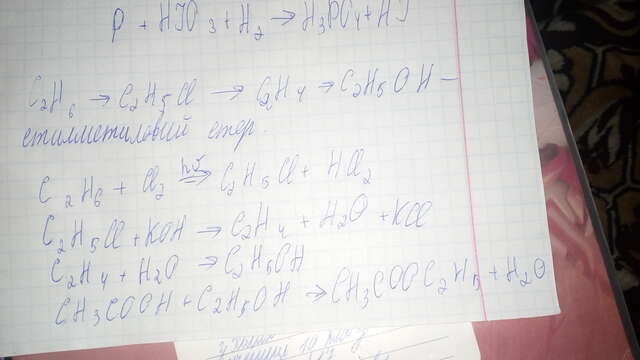 P + HJO3 + H2 → H3PO4 + HJ
C2H6 → C2H5Cl → C2H4 → C2H5OH –
етилметиловий етер.
C2H6 + Cl2 hν ⇒ C2H5Cl + HCl2
C2H5Cl + KOH → C2H4 + H2O + KCl
C2H4 + H2O → C2H5OH
CH3COOH + C2H5OH → CH3COOC2H5 + H2O